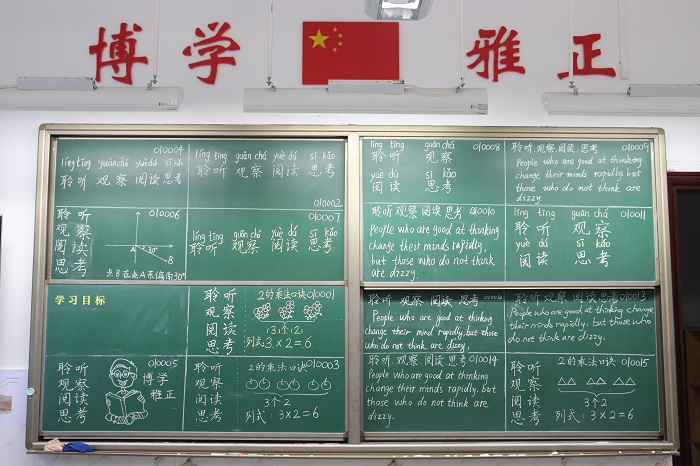 博学 雅正
010004
líng tīng guān chá yuè dú sī kǎo
聆听 观察 阅读 思考
líng tīng guān chá yuè dú sī kǎo
聆听 观察 阅读 思考
010002
líng tīng guān chá
010008
聆听 观察
yuè dú sī kǎo
阅读 思考
聆听、观察、阅读、思考
010009
People who are good at thinking
change their minds rapidly, but
those who do not think are
dizzy.
010006
聆听
观察
阅读
思考
A
30°
B
点B在点A东偏南30°
010007
líng tīng guān chá yuè dú sī kǎo
聆听 观察 阅读 思考
聆听 观察 阅读 思考 010010
People who are good at thinking
change their minds rapidly,
but those who do not think
are dizzy.
010011
líng tīng guān chá
聆听 观察
yuè dú sī kǎo
阅读 思考
学习目标
聆听
观察
阅读
思考
2的乘法口诀 010001
(3个2)
列式: 3×2=6
聆听 观察 阅读 思考
People who are good at thinking
change their minds rapidly, but those
who do not think are dizzy.
聆听 观察 阅读 思考 010013
People who are good at thinking change
their minds rapidly, but those who
do not think are dizzy.
010005
聆听
观察
阅读
思考
博学
雅正
聆听
观察
阅读
思考
2的乘法口诀 010003
3个2
列式: 3×2=6
聆听 观察 阅读 思考 010014
People who are good at thinking
change their minds rapidly, but
those who do not think are
dizzy.
聆听
观察
阅读
思考
2的乘法口诀 010015
3个2
列式: 3×2=6